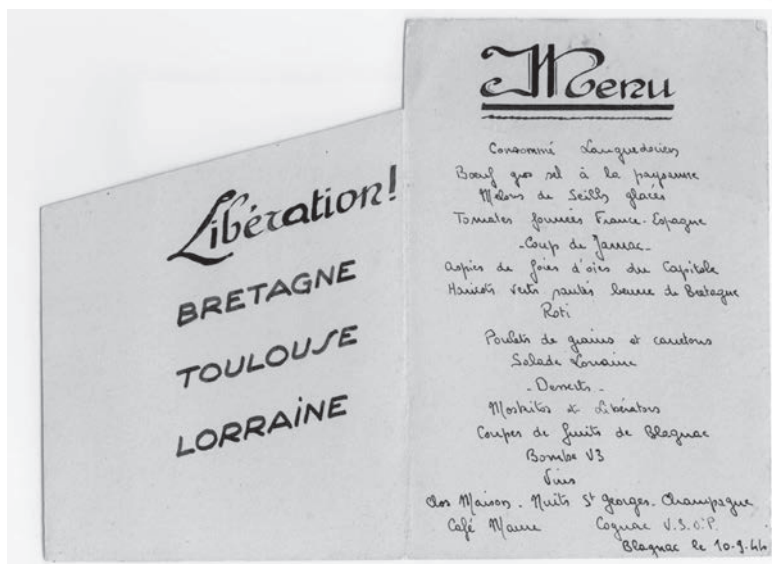 Libération!
BRETAGNE
TOULOUSE
LORRAINE
Menu
Consommé Languedocien
Bœuf gros sel à la paysanne
Melons de Seilh glacés
Tomates fourrées France-Espagne
-Coup de Jarnac-
aspics de foies d'oies du Capitole
Haricots verts sautés beurre de Bretagne
Roti
Poulets de grains et canetons
Salade Lorraine
-Desserts-
Moskitos et Libérators
Coupes de fruits de Blagnac
Bombe V3
Vins
Clos Maison. Nuits St Georges. Champagne
Café Maure Cognac V.S.O.P.
Blagnac le 10.9.44